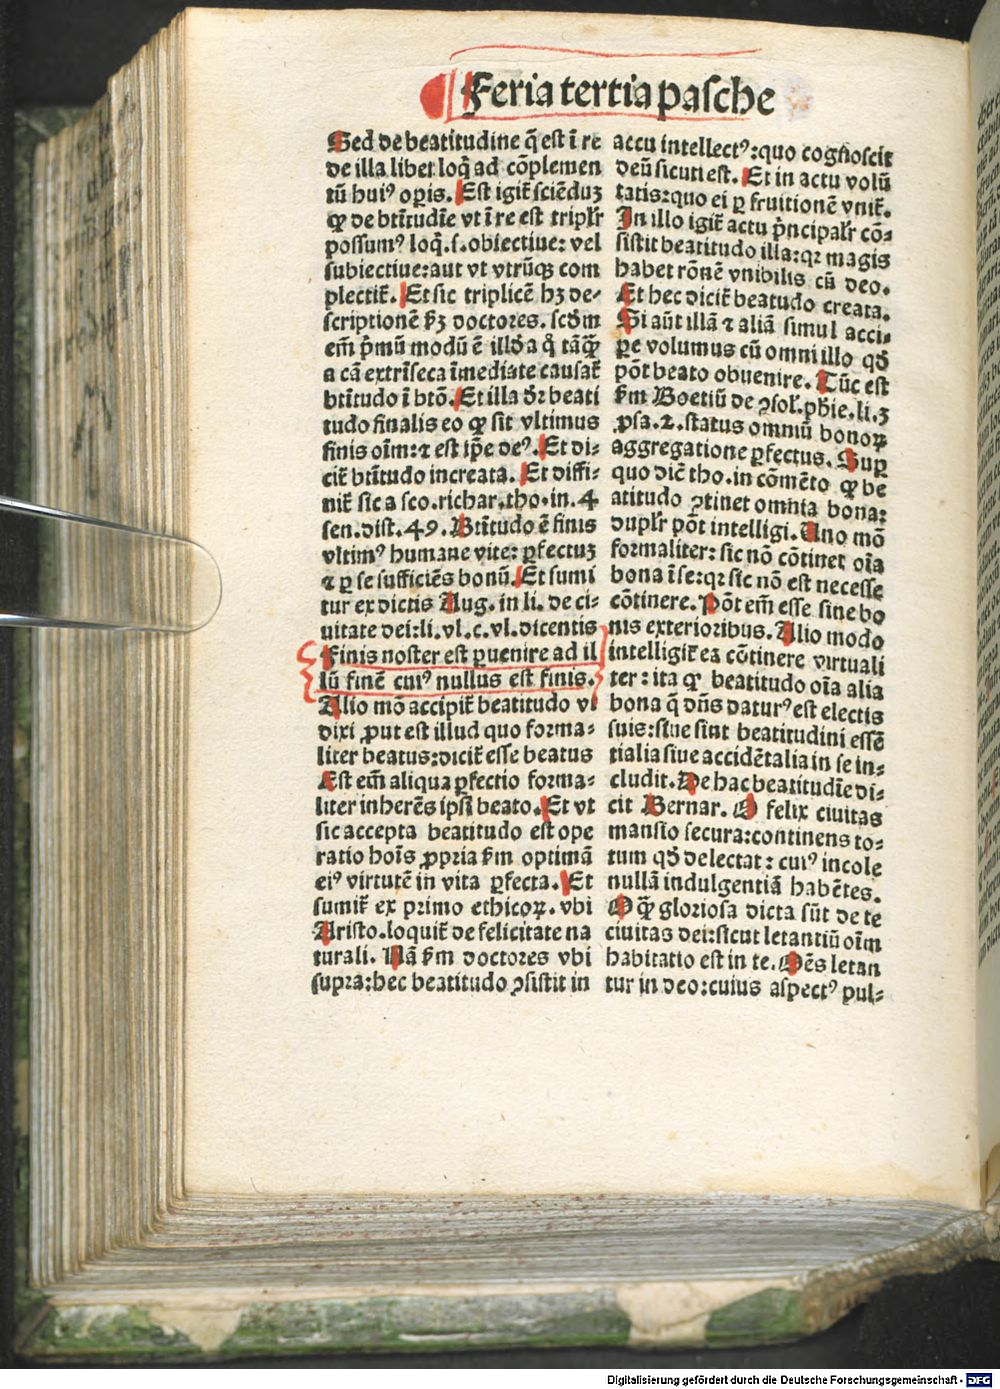 Feria tertia pasche
Sed de beatitudine q̃ est ĩ re
de illa libet loq̃ ad cõplemen
tũ huiꝰ oꝑis. Est igit̃ sciẽduʒ
ꝙ de btĩtudĩe vt ĩ re est tripĺr
possumꝰ loq̃. s. obiectiue: vel
subiectiue: aut vt vtrũqʒ com
plectit̃. Et sic triplicẽ hʒ de-
scriptionẽ ẜʒ doctores. scđm
em̃ p̃mũ modũ ẽ illđ a q̃ tãq̃ʒ
a cã extrĩseca ĩmediate causat̃
btĩtudo ĩ btõ. Et illa đr beati
tudo finalis eo ꝙ sit vltimus
finis oĩm: ⁊ est ip̃e deꝰ. Et di-
cit̃ btĩtudo increata. Et diffi-
nit̃ sic a sco. richar. tho. in. 4
sen. dist. 49. Btĩtudo ẽ finis
vltimꝰ humane vite: ꝑfectuʒ
⁊ ꝑ se sufficiẽs bonũ. Et sumi
tur ex dictis Aug. in li. de ci-
uitate dei: li. vl. c. vl. dicentis
Finis noster est ꝑuenire ad il
lũ finẽ cuiꝰ nullus est finis.
Alio mõ accipit̃ beatitudo vt
dixi ꝓut est illud quo forma-
liter beatus: dicit̃ esse beatus
Est em̃ aliqua ꝑfectio forma-
liter inherẽs ipsi beato. Et vt
sic accepta beatitudo est ope
ratio hoĩs ꝓpria ẜm optimã
eiꝰ virtutẽ in vita ꝑfecta. Et
sumit̃ ex primo ethicoꝝ. vbi
Aristo. loquit̃ de felicitate na
turali. Nã ẜm doctores vbi
supra: hec beatitudo ꝯsistit in
actu intellectꝰ: quo cognoscit
deũ sicuti est. Et in actu volũ
tatis: quo ei ꝑ fruitionẽ vnit̃.
In illo igit̃ actu p̃ncipaĺr cõ-
sistit beatitudo illa: qꝛ magis
habet rõnẽ vnibilis cũ deo.
Et hec dicit̃ beatudo creata.
Si aũt illã ⁊ aliã simul acci-
pe volumus cũ omni illo qđ
põt beato obuenire. Tũc est
ẜm Boetiũ de ꝯsol. pħie. li. 3
ꝓsa. 2. status omniũ bonoꝝ
aggregatione ꝑfectus. Suꝑ
quo dic̃ tho. in cõmẽto ꝙ be
atitudo ꝯtinet omnia bona:
dupĺr põt intelligi. Uno mõ
formaliter: sic nõ cõtinet oĩa
bona ĩ se: qꝛ sic nõ est necesse
cõtinere. Põt em̃ esse sine bo
nis exterioribus. Alio modo
intelligit̃ ea cõtinere virtuali
ter: ita ꝙ beatitudo oĩa alia
bona q̃ dñs daturꝰ est electis
suis: siue sint beatitudini essẽ
tialia siue accidẽtalia in se in-
cludit. De hac beatitudĩe di-
cit Bernar. O felix ciuitas
mansio secura: continens to-
tum qđ delectat: cuiꝰ incole
nullã indulgentiã habẽtes.
O q̃ʒ gloriosa dicta sũt de te
ciuitas dei: sicut letantiũ oĩm
habitatio est in te. Oẽs letan
tur in deo: cuius aspectꝰ pul-
Digitalisierung gefördert durch die Deutsche Forschungsgemeinschaft - DFG